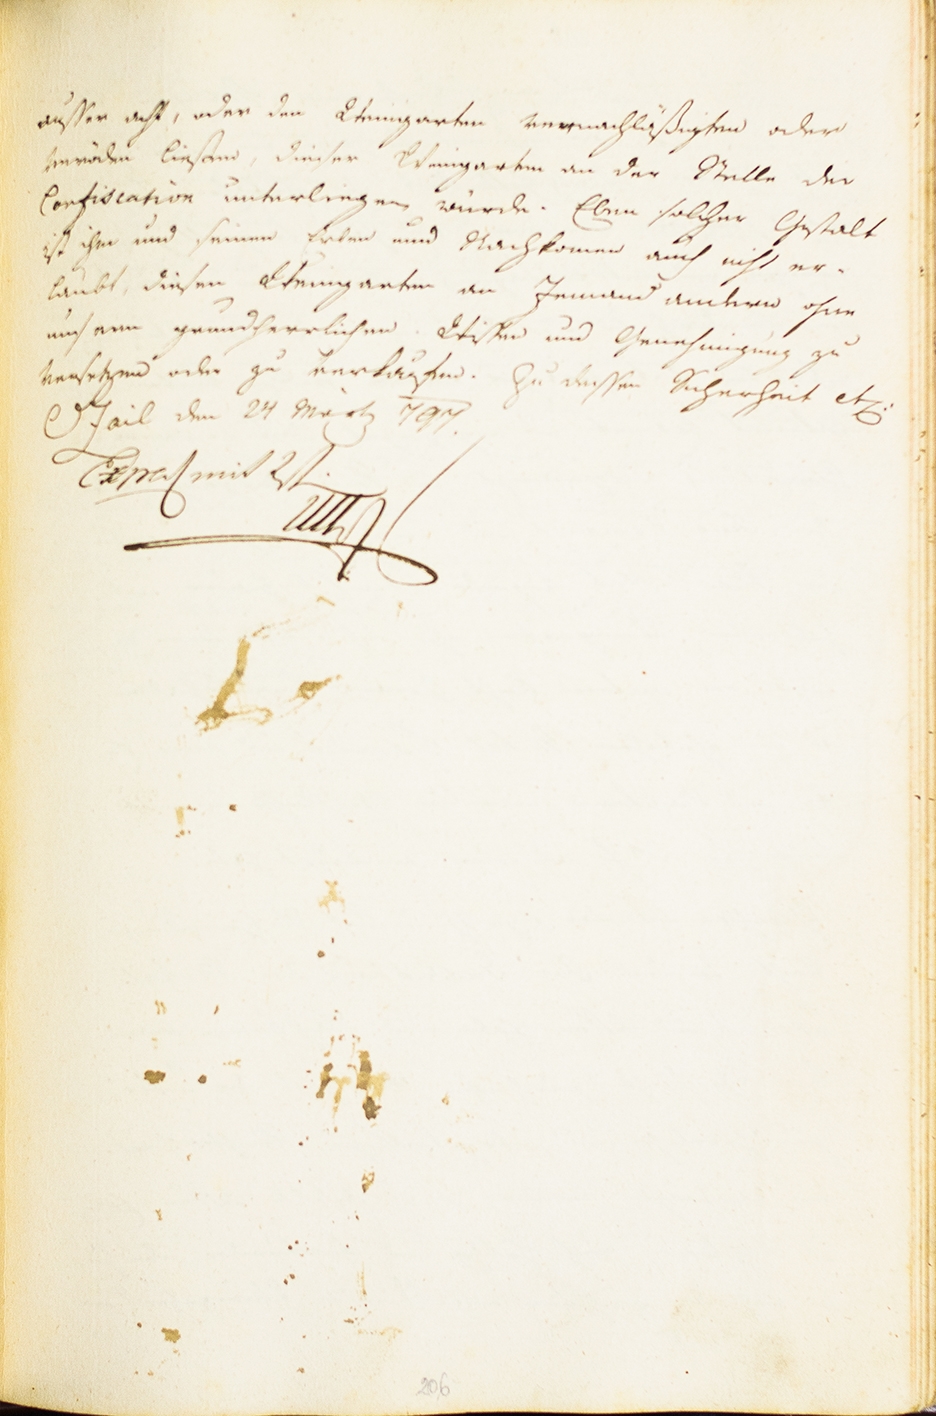 ausser acht, oder den Weingarten vernachläßigten oder
veröden ließen, dieser Weingarten an der Stelle der
Confiscation unterliegen würde. Eben solcher Gestalt
ist ihm und seinen Erben und Nachkomen auch nicht er-
laubt, diesen Weingarten an Jemand andern ohne
unsern grundherrlichen Wissen und Genehmigung zu
versetzen oder zu verkaufen. Zu dessen Sicherheit etc:
den 24 März 797.
mit
206